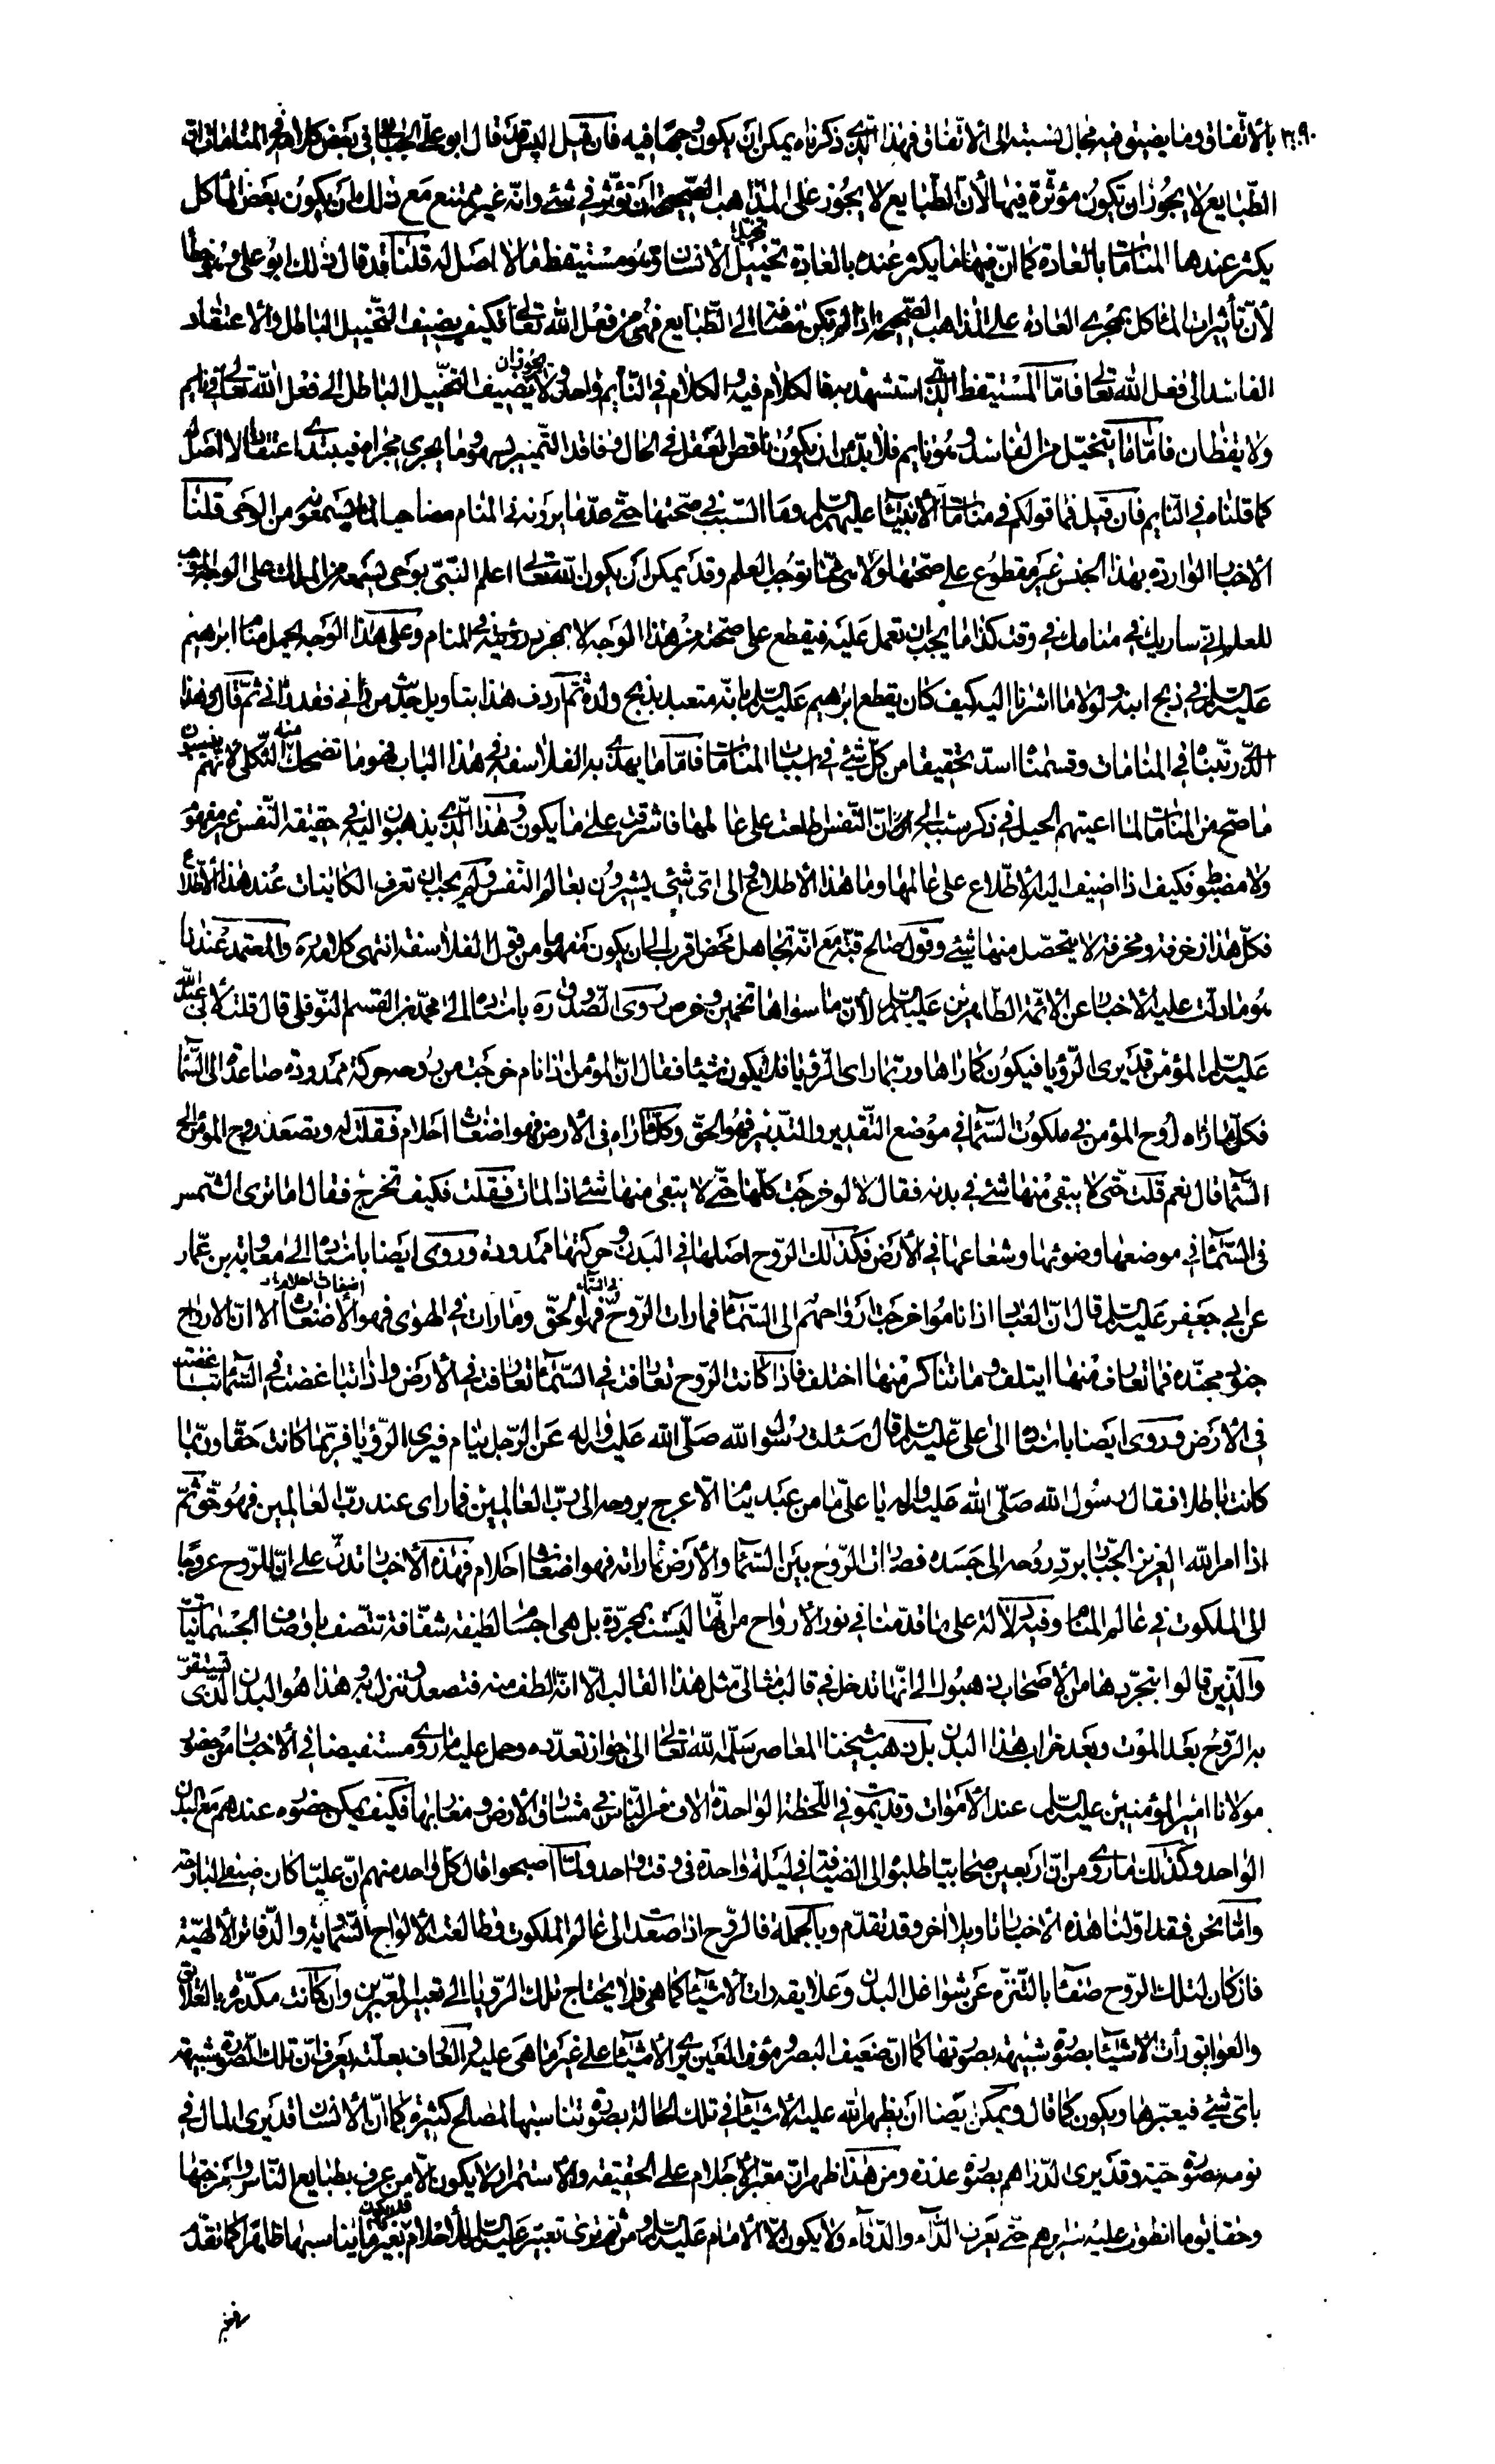 بالاتّفاق وما يضيق فيه مجال نسبته الى الاتّفاق فهذا الّذي ذكرناه يمكن ان يكون وجها فيه فان قيل اليس قد قال ابو علي الجبائي في بعض كلامه في المنامات انّ
الطّبايع لا يجوز ان تكون مؤثّرة فيها لأنّ الطّبايع لا يجوز على المذاهب الصّحيحة ان تؤثّر في شئ وانّه غير ممتنع مع ذلك ان يكون بعض المأكل
يكثر عندها المنامات بالعادة كما انّ فيها ما يكثر عنده بالعادة تخييل الأنسان وهو مستيقظ ما لا اصل له قلنا قد قال ذلك ابو علي وهو خطأ
لأنّ تأثيرات المأكل بمجرى العادة على المذاهب الصّحيحة اذا لم تكن مضافة الى الطّبايع فهي من فعل الله تعالى فكيف يضيف التّخييل الباطل والاعتقاد
الفاسد الى فعل الله تعالى فامّا المستيقظ الّذي استشهد به فالكلام فيه والكلام في النّايم واحد ولا يجوز ان يضيف التّخييل الباطل الى فعل الله تعالى في نايم
ولا يقظان فامّا ما يتخيّل من الفاسد وهو نايم فلا بدّ من ان يكون ناقص العقل في الحال وفاقد التّمييز بسهو وما يجري مجراه فيبتدي اعتقادا لا اصل له
كما قلناه في النّايم فان قيل فما قولكم في منامات الأنبياء عليهم السلم وما السّبب في صحّتها حتّى عدّ ما يرونه في المنام مضاهيا لما يسمعونه من الوحي قلنا
الأخبار الواردة بهذا الجنس غير مقطوع على صحّتها ولا هي ممّا توجب العلم وقد يمكن ان يكون الله تعالى اعلم النّبي بوحي يسمعه من الملك على الوجه الموجب
للعلم انّي ساريك في منامك في وقت كذا ما يجب ان تعمل عليه فيقطع على صحّته من هذا الوجه لا بمجرّد رؤيته في المنام وعلى هذا الوجه يحمل منام ابرهيم
عليه السلم في ذبح ابنه ولولا ما اشرنا اليه كيف كان يقطع ابرهيم عليه السلم بانّه متعبد بذبح ولده ثمّ اردف هذا بتاويل حديث من رآني فقد رآني ثمّ قال وهذا
الّذي رتّبناه في المنامات وقسمناه اسدّ تحقيقا من كلّ شئ في اسباب المنامات فامّا ما يهذي به الفلاسفة في هذا الباب فهو ما تضحك منه الثّكلى لأنّهم ينسبون
ما صحّ من المنامات لما اعيتهم الحيل في ذكر سببه الى انّ النّفس اطلعت على عالمها فاشرفت على ما يكون وهذا الّذي يذهبون اليه في حقيقة النّفس غير مفهوم
ولا مضبوط فكيف اذا اضيف اليه الاطّلاع على عالمها وما هذا الاطلاع والى ايّ شئ يشيرون بعالم النّفس ولم يجب ان تعرف الكاينات عند هذا الأطلاع
فكلّ هذا زخرفة ومخرقة لا يتحصّل منها شئ وقول صالح قبّة مع انّه تجاهل محض اقرب الى ان يكون مفهوما من قول الفلاسفة انتهى كلامه ره والمعتمد عندنا
هو ما دلّت عليه الأخبار عن الأئمّة الطّاهرين عليهم السلم لأنّ ما سواها تخمين وخرص روى الصّدوق ره باسناده الى محمّد بن القسم النّوفلي قال قلت لأبي عبد الله
عليه السلم المؤمن قد يرى الرّؤيا فيكون كما رآها وربّما رأى الرّؤيا فلا يكون شيئا فقال انّ المؤمن اذا نام خرجت من روحه حركة ممدودة صاعدة الى السّماء
فكلّما رآه روح المؤمن في ملكوت السّماء في موضع التّقدير والتّدبير فهو الحقّ وكلّما رآه في الأرض فهو اضغاث احلام فقلت له وتصعد روح المؤمن الى
السّماء قال نعم قلت حتّى لا يبقى منها شئ في بدنه فقال لا لو خرجت كلّها حتّى لا يبقى منها شئ اذا لمات فقلت فكيف تخرج فقال اما ترى الشّمس
في السّماء في موضعها وضوئها وشعاعها في الأرض فكذلك الرّوح اصلها في البدن وحركتها ممدودة وروى ايضا باسناده الى معاوية بن عمّار
عن ابي جعفر عليه السلم قال انّ العباد اذا ناموا خرجت ارواحهم الى السّماء فما رأت الرّوح في السّماء فهو الحقّ وما رأت في الهوى فهو الاضغاث الا انّ الارواح
جنود مجنّدة فما تعارف منها ايتلف وما تناكر منها اختلف فاذا كانت الرّوح تعارفت في السّماء تعارفت في الأرض واذا تباغضت في السّماء تباغضت
في الأرض وروى ايضا باسناده الى علي عليه السلم قال سئلت رسول الله صلّى الله عليه واله عن الرّجل ينام فيرى الرّؤيا فربّما كانت حقا وربّما
كانت باطلا فقال رسول الله صلّى الله عليه واله يا عليّ ما من عبد ينام الّا عرج بروحه الى ربّ العالمين فما رأى عند ربّ العالمين فهو حقّ ثمّ
اذا امر الله العزيز الجبّار بردّ روحه الى جسده فصارت الرّوح بين السّماء والأرض فما راته فهو اضغاث احلام فهذه الأخبار تدلّ على انّ للرّوح عروجا
الى الملكوت في عالم المنام وفيه دلالة على ما قدّمناه في نور الأرواح من انّها ليست بمجرّدة بل هي اجسام لطيفة شفّافة تتّصف باوصاف الجسمانيّات
والّذين قالوا بتجرّدها من الأصحاب ذهبوا الى انّها تدخل في قالب مثاليّ مثل هذا القالب الّا انّه الطف منه فتصعد وتنزل به وهذا هو البدن الّذي تستقرّ
به الرّوح بعد الموت وبعد خراب هذا البدن بل ذهب شيخنا المعاصر سلّمه الله تعالى الى جواز تعدّده وحمل عليه ما روي مستفيضا في الأخبار من حضور
مولانا امير المؤمنين عليه السلم عند الأموات وقد يموت في اللّحظة الواحدة الاف من النّاس في مشارق الأرض ومغاربها فكيف يمكن حضوره عندهم مع البدن
الواحد وكذلك ما روي من انّ اربعين صحابيّا طلبوا الى الضّيافة في ليلة واحدة في وقت واحد ولمّا اصبحوا قال كلّ واحد منهم انّ عليّا كان ضيفي البارحة
وامّا نحن فقد اوّلنا هذه الأخبار تاويلا آخر وقد تقدّم وبالجملة فالرّوح اذا صعد الى عالم الملكوت وطالعت الألواح السّماوية والدّفاتر الألهيّة
فان كان لتلك الرّوح صفاء بالتّنزّه عن شواغل البدن وعلايقه رات الأشياء كما هي فلا يحتاج تلك الرّؤيا الى تعبير المعبّرين وان كانت مكدّرة بالعلائق
والعوايق رأت الأشياء بصورة شبيهة بصورتها كما انّ ضعيف البصر ومؤف العين يرى الأشياء على غير ما هي عليه والعارف بعلّته يعرف انّ تلك الصّورة شبيهة
بايّ شئ فيعبّرها ويكون كما قال ويمكن ايضا ان يظهر الله عليه الأشياء في تلك الحالة بصورة تناسبها لمصالح كثيرة كما انّ الأنسان قد يرى المال في
نومه بصورة حيّة وقد يرى الدّراهم بصورة عذرة ومن هذا ظهر انّ معبّر الأحلام على الحقيقة والاستمرار لا يكون الّا من عرف بطبايع النّاس وامزجتها
وحقايق ما انطوت عليه سرايرهم حتّى يعرف الدّاء والدّواء ولا يكون الّا الامام عليه السلم ومن ثمّ ترى تعبيره عليه السلم للأحلام بغير ما يناسبها ظاهرا كما تقدّم